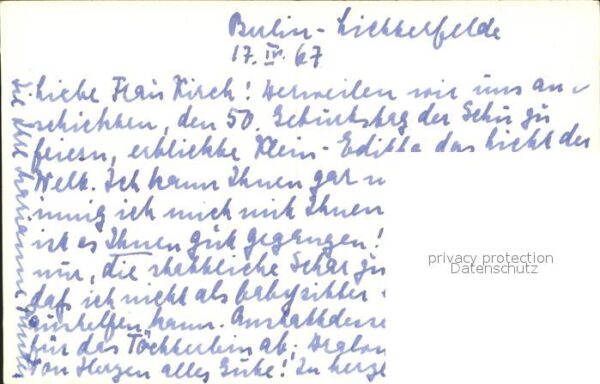 Berlin-Lichterfelde
17. IV. 67
Liebe Frau Kirch! Derweilen wir uns an-
schickten, den 50. Geburtstag der Schu zu
feiern, erblickte Klein-Editha das Licht der
Welt. Ich kann Ihnen gar n
innig ich mich mit Ihnen
ist es Ihnen gut gegangen!
nur, die stattliche Schar zu
daß ich nicht als babysitter
aushelfen kann. Anstattdesse
für das Töchterlein ab;
Von Herzen alles Gute! In herzl
Ihre Marianne
privacy protection
Datenschutz